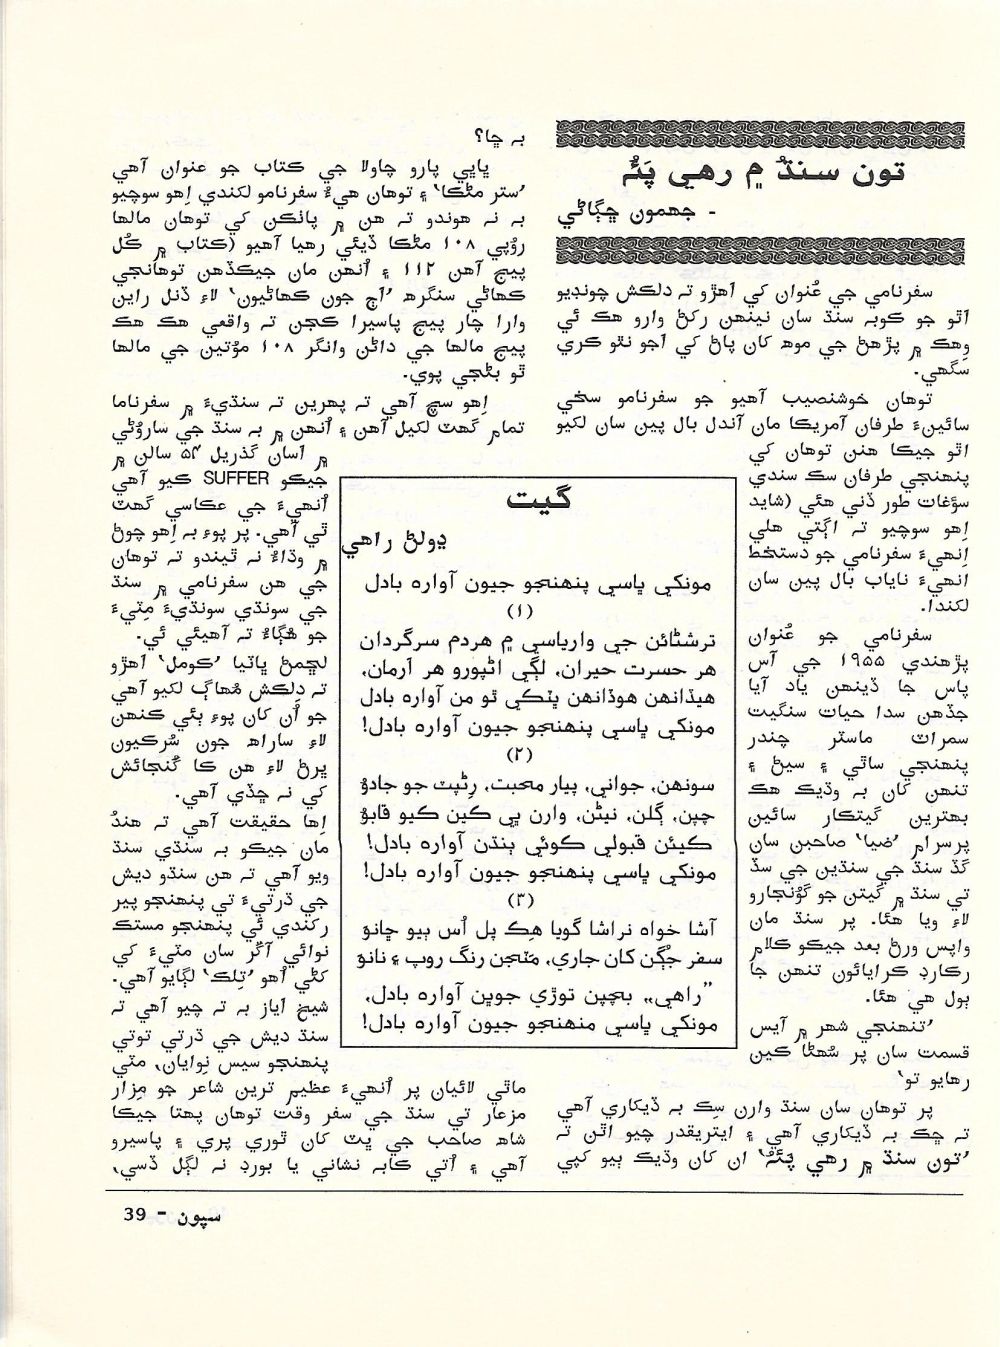 تون سنڌُ ۾ رهي پَئُہ
- جهمون ڇڳاڻي
سفرنامي جي عُنوان کي اهڙو تہ دلڪش چونڊيو
اٿو جو ڪوبہ سنڌ سان نينهن رکڻ وارو هڪ ئي
وِهڪ ۾ پڙهڻ جي موھ کان پاڻ کي آجو نٿو ڪري
سگهي.
توهان خوشنصيب آهيو جو سفرنامو سخي
سائينءَ طرفان آمريڪا مان آندل بال پين سان لکيو
اٿو جيڪا هنن توهان کي
پنهنجي طرفان سڪ سندي
سوُغات طور ڏني هئي (شايد
اِهو سوچيو تہ اڳتي هلي
اِنهيءَ سفرنامي جو دستخط
انهيءَ ناياب بال پين سان
لکندا.
سفرنامي جو عُنوان
پڙهندي ۱۹۵۵ جي آس
پاس جا ڏينهن ياد آيا
جڏهن سدا حيات سنگيت
سمراٽ ماسٽر چندر
پنهنجي ساٿي ۽ سيڻ ۽
تنهن کان بہ وڌيڪ هڪ
بهترين گيتڪار سائين
پرسرام ’ضيا‘ صاحبن سان
گڏ سنڌ جي سنڌين جي سڏ
تي سنڌ ۾ گيتن جو گوُنجارو
لاءِ ويا هئا. پر سنڌ مان
واپس ورڻ بعد جيڪو ڪلام
رڪارڊ ڪرايائون تنهن جا
ٻول هي هئا.
’تنهنجي شهر ۾ آيس
قسمت سان پر سُهڻا ڪين
رهايو تو‘
پر توهان سان سنڌ وارن سِڪ بہ ڏيکاري آهي
تہ ڇڪ بہ ڏيکاري آهي ۽ ايتريقدر چيو اٿن تہ
’تون سنڌ ۾ رهي پَئُہ‘ ان کان وڌيڪ ٻيو کپي
بہ ڇا؟
ڀاڀي پارو چاولا جي ڪتاب جو عنوان آهي
’ستر مڻڪا‘ ۽ توهان هيءُ سفرنامو لکندي اِهو سوچيو
بہ نہ هوندو تہ هن ۾ پاٺڪن کي توهان مالها
روُپي ۱۰۸ مڻڪا ڏيئي رهيا آهيو (ڪتاب ۾ ڪُل
پيج آهن ۱۱۲ ۽ اُنهن مان جيڪڏهن توهانجي
ڪهاڻي سنگرھ ’اڄ جون ڪهاڻيون‘ لاءِ ڏنل راين
وارا چار پيج پاسيرا ڪجن تہ واقعي هڪ هڪ
پيج مالها جي داڻن وانگر ۱۰۸ موُتين جي مالها
ٿو بڻجي پوي.
اِهو سچ آهي تہ پهرين تہ سنڌيءَ ۾ سفرناما
تمام گهٽ لکيل آهن ۽ اُنهن ۾ بہ سنڌ جي ساروُڻي
۾ اسان گذريل ۵۴ سالن ۾
جيڪو SUFFER ڪيو آهي
اُنهيءَ جي عڪاسي گهٽ
ٿي آهي. پر پوءِ بہ اِهو چوڻ
۾ وڌاءُ نہ ٿيندو تہ توهان
جي هن سفرنامي ۾ سنڌ
جي سونڌي سونڌيءَ مِٽيءَ
جو هُڳاءُ تہ آهيئي ئي.
لڇمڻ ڀاٽيا ’ڪومل‘ اهڙو
تہ دِلڪش مُهاڳ لکيو آهي
جو اُن کان پوءِ ٻئي ڪنهن
لاءِ ساراھ جون سُرڪيون
ڀرڻ لاءِ هن ڪا گُنجائش
کي نہ ڇڏي آهي.
اِها حقيقت آهي تہ هندُ
مان جيڪو بہ سنڌي سنڌ
ويو آهي تہ هن سنڌو ديش
جي ڌرتيءَ تي پنهنجو پير
رکندي ئي پنهنجو مستڪ
نوائي آڱُر سان مٽيءَ کي
کڻي اُهو ’تِلڪ‘ لڳايو آهي.
شيخ اياز بہ تہ چيو آهي تہ
سنڌ ديش جي ڌرتي توتي
پنهنجو سيس نِوايان، مٽي
ماٿي لائيان پر اُنهيءَ عظيم ترين شاعر جو مِزار
مزعار تي سنڌ جي سفر وقت توهان پهتا جيڪا
شاھ صاحب جي ڀٽ کان ٿوري پري ۽ پاسيرو
آهي ۽ اُتي ڪابہ نشاني يا بورڊ نہ لڳل ڏسي،
گيت
ڍولڻ راهي
مونکي ڀاسي پنهنجو جيون آواره بادل
(۱)
ترشنائن جي وارياسي ۾ هردم سرگردان
هر حسرت حيران، لڳي اڻپورو هر آرمان،
هيڏانهن هوڏانهن ڀٽڪي ٿو من آواره بادل
مونکي ڀاسي پنهنجو جيون آواره بادل!
(۲)
سونهن، جواني، پيار محبت، رِڻپٽ جو جادوُ
چپن، ڳلن، نيڻن، وارن ڀي ڪين ڪيو قابوُ
ڪيئن قبولي ڪوئي ٻنڌن آواره بادل!
مونکي ڀاسي پنهنجو جيون آواره بادل!
(۳)
آشا خواه نراشا گويا هِڪ پل اُس ٻيو ڇانوَ
سفر جُڳن کان جاري، مٽجن رنگ روپ ۽ نانوَ
”راهي„ بچپن توڙي جوڀن آواره بادل،
مونکي ڀاسي منهنجو جيون آواره بادل!
سپون - 39